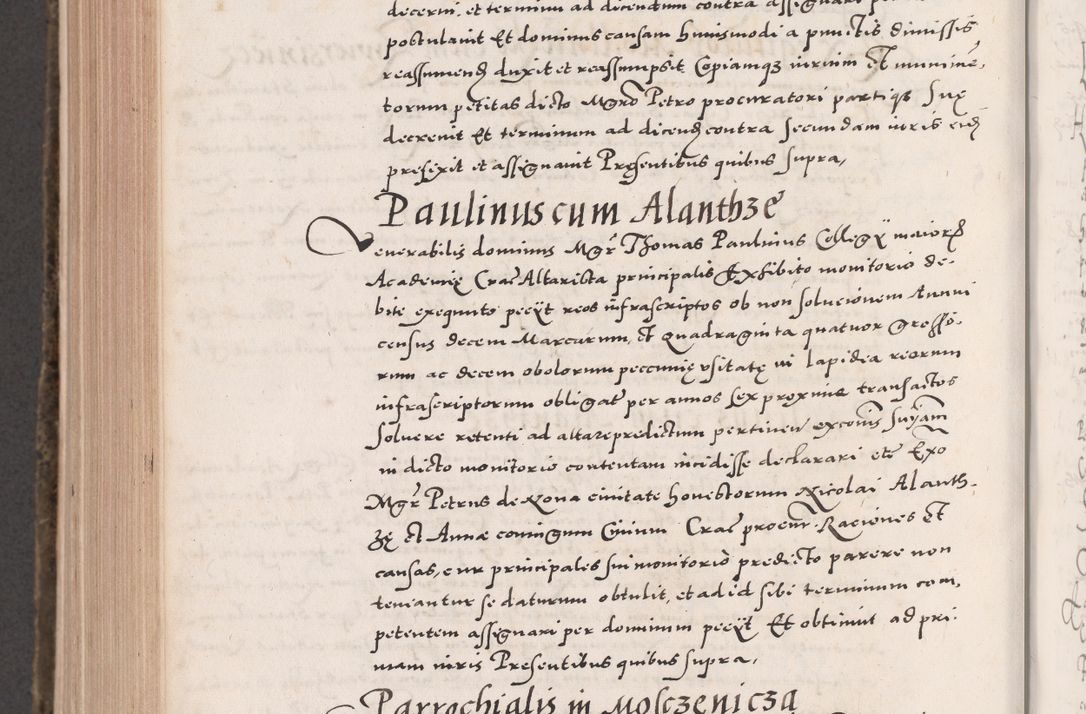 decerni, et terminum ad dicendum contra assignari
postulavit Et dominus causam huiusmodi a punctis dimissis
reassumend duxit et reassumpsit Copiamqz iurium Et munime-
torum petitas dicto Mgro Petro procuratori partiqz Suę
decrevit Et terminum ad dicend contra Secundam iuris eid
prefixit et assignavit Presentibus quibus supra,
Paulinus cum Alanthze
Venerabilis dominus Mgr Thomas Paulinus Collegÿ maioris
Academię Crac Altarista principalis Exhibito monitorio de-
bite exequuto pecÿt reos infrascriptos ob non solucionem Annui
census decem Marcarum, Et Quadraginta quatuor Grosso-
rum ac decem obolorum peccunię usitatę in lapidea reorum
infrascriptorum obligat per annos sex proxime transactos
solvere retenti ad altare predictum pertinen excomis Suÿam
in dicto monitorio contentam incidisse declarari etc Exo
Mgr Petrus de Nova civitate honestorum Nicolai Alanth-
zę Et Annae coniugum Civium Crac procur Raciones Et
causas, cur principales sui monitorio predicto parere non
teneantur se daturum obtulit, et ad id sibi terminum com-
petentem assignari per dominum pecÿt Et obtinuit ad pri-
mam iuris Presentibus quibus supra,
Parrochialis in Mosczenicza